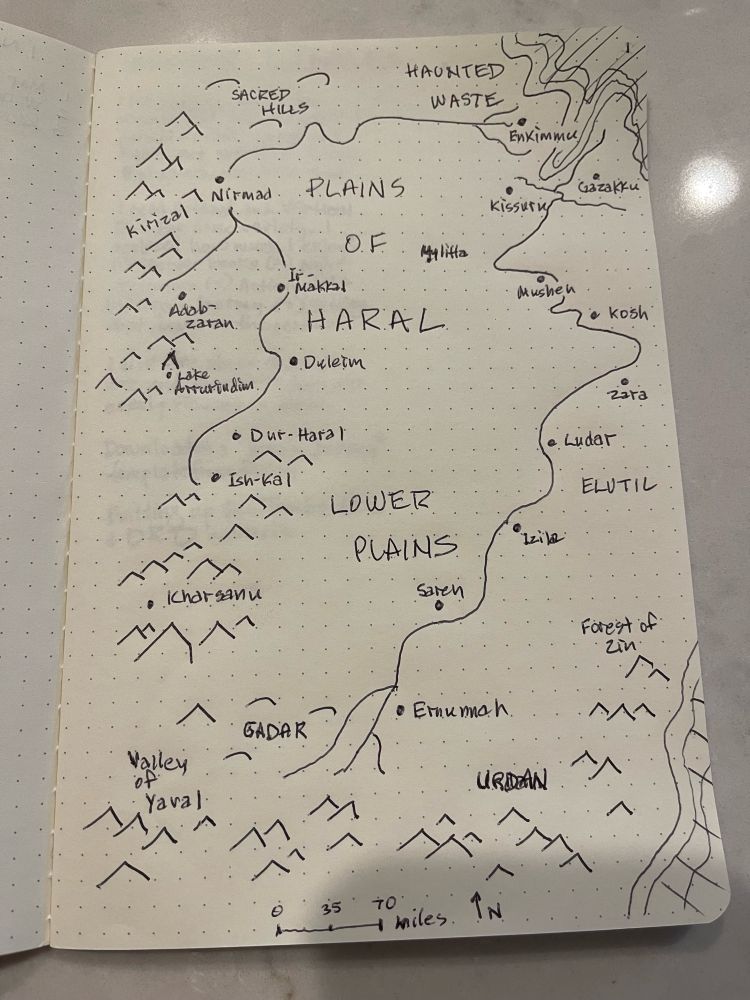 HAUNTED
WASTE
SACRED
HILLS
Enkimmu
Nirmad
PLAINS
Gazakku
Kissuru
Kirizal
OF
Ir-
Makkal
Mushen
Adab-
zaran
HARAL
Kosh
Duleim
Lake
Zara
Dur-Haral
Ludar
Ish-Kal
ELUTIL
LOWER
PLAINS
Kharsanu
Saren
Forest of
Zin
Ernumah
GADAR
Valley
of
Yaral
URDAN
0 35 70
miles
N